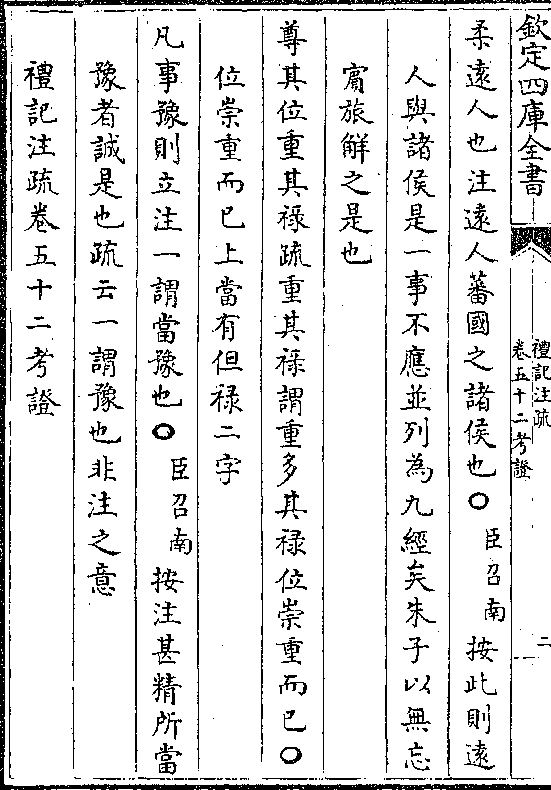 欽定四庫全書
禮記注疏
卷五十二考證
二
柔逺人也注逺人蕃國之諸侯也〇臣召南按此則逺
人與諸侯是一事不應並列為九經矣朱子以無忘
賓旅解之是也
尊其位重其祿疏重其祿謂重多其祿位崇重而已〇
位崇重而已上當有但祿二字
凡事豫則立注一謂當豫也〇臣召南按注甚精所當
豫者誠是也疏云一謂豫也非注之意
禮記注疏卷五十二考證